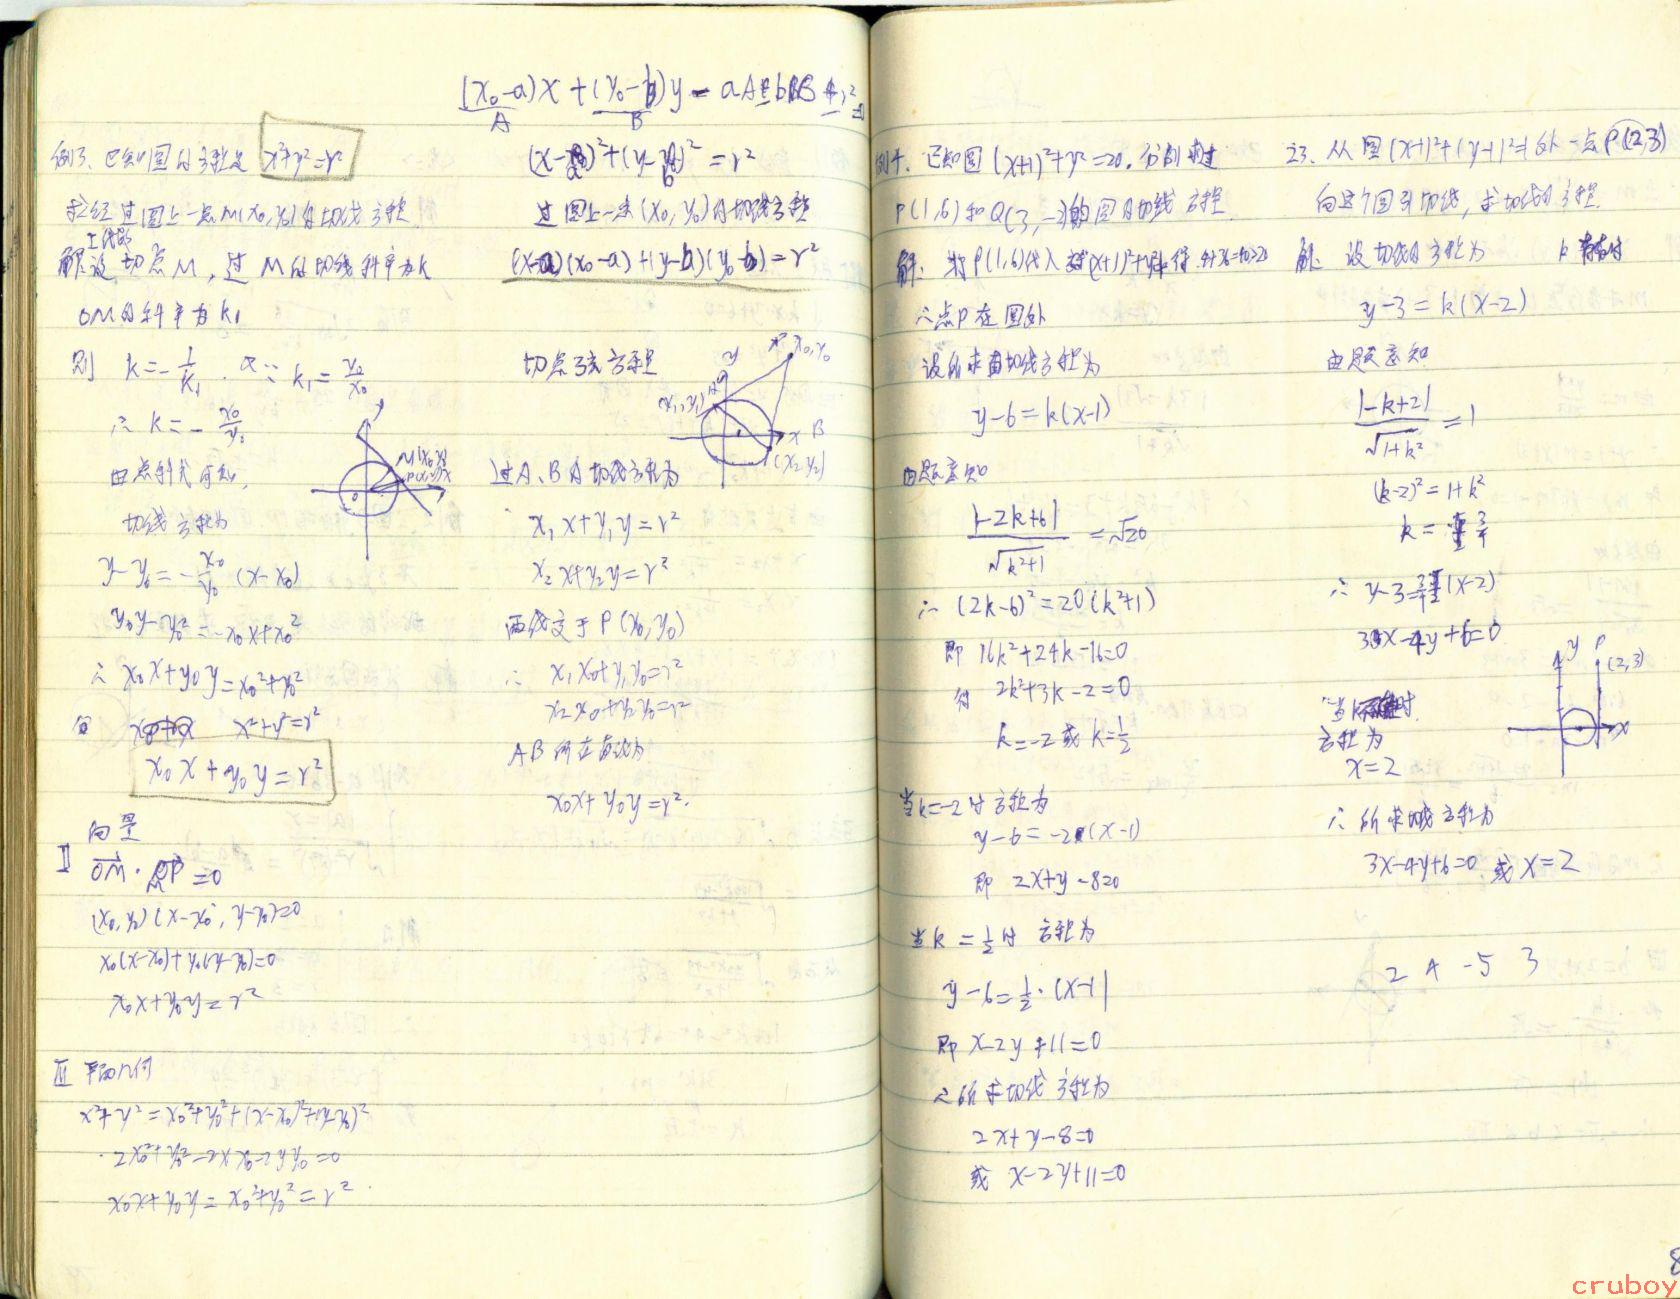 (x₀-a)x+(y₀-b)y-aA-bB-r²=0
A B
例3. 已知圆的方程是 x²+y²=r²
求经过圆上一点M(x₀,y₀)的切线方程.
解 设切点M, 过M的切线斜率为k
OM的斜率为k₁
则 k=-1/k₁. ∵ k₁=y₀/x₀
∴ k=-x₀/y₀
由点斜式可知,
切线方程为
y-y₀=-x₀/y₀(x-x₀)
y₀y-y₀²=-x₀x+x₀²
∴ x₀x+y₀y=x₀²+y₀²
x²+y²=r²
x₀x+y₀y=r²
M(x₀,y₀)
P(x,y)
x
Ⅱ 向量
OM·MP=0
(x₀,y₀)(x-x₀, y-y₀)=0
x₀(x-x₀)+y₀(y-y₀)=0
x₀x+y₀y=r²
Ⅲ 平面几何
x²+y²=x₀²+y₀²+(x-x₀)²+(y-y₀)²
2x₀²+2y₀²-2x x₀-2y y₀=0
x₀x+y₀y=x₀²+y₀²=r².
(x-a)²+(y-b)²=r²
过圆上一点(x₀,y₀)的切线方程
(x-a)(x₀-a)+(y-b)(y₀-b)=r²
切点弦方程
y
P x₀,y₀
(x₁,y₁) A
x B
(x₂,y₂)
过A、B的切线方程为
x₁x+y₁y=r²
x₂x+y₂y=r²
两线交于P(x₀,y₀)
∴ x₁x₀+y₁y₀=r²
x₂x₀+y₂y₀=r²
AB所在直线为
x₀x+y₀y=r².
例4. 已知圆(x+1)²+y²=20. 分别求过
P(1,6)和Q(3,-2)的圆的切线方程.
解: 将P(1,6)代入(x+1)²+y²得 4+36=40>20
∴点P在圆外
设所求切线方程为
y-6=k(x-1)
由题意知
|-2k+6|/√k²+1=√20
∴ (2k-6)²=20(k²+1)
即 16k²+24k-16=0
2k²+3k-2=0
k=-2或k=1/2
当k=-2时方程为
y-6=-2(x-1)
即 2x+y-8=0
当k=1/2时 方程为
y-6=1/2·(x-1)
即 x-2y+11=0
∴所求切线方程为
2x+y-8=0
或 x-2y+11=0
23. 从圆(x-1)²+(y-1)²=1外一点P(2,3)
向这个圆引切线, 求切线的方程.
解: 设切线的方程为
y-3=k(x-2)
由题意知
|-k+2|/√1+k²=1
(k-2)²=1+k²
k=3/4
∴ y-3=3/4(x-2)
3x-4y+6=0
当k不存在时
方程为
x=2
y P
(2,3)
x
∴所求线方程为
3x-4y+6=0 或 x=2
2 4 -5 3
8
cruboy